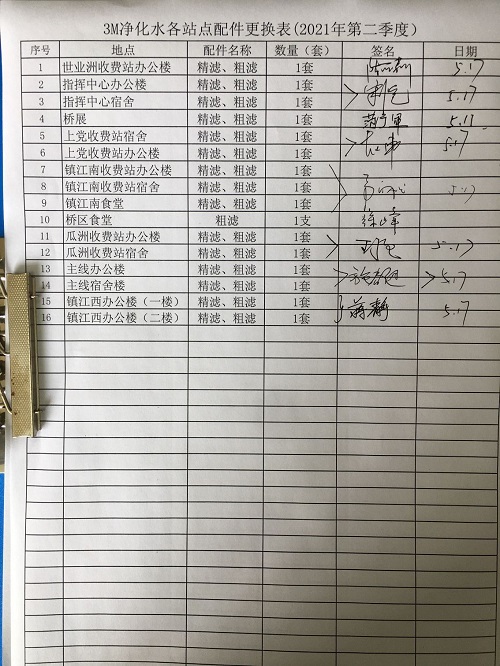 3M净化水各站点配件更换表(2021年第二季度)
序号 地点 配件名称 数量（套） 签名 日期
1 世业洲收费站办公楼 精滤、粗滤 1套 5.17
2 指挥中心办公楼 精滤、粗滤 1套
3 指挥中心宿舍 精滤、粗滤 1套 5.17
4 桥展 精滤、粗滤 1套
5 上党收费站宿舍 精滤、粗滤 1套 5.17
6 上党收费站办公楼 精滤、粗滤 1套
7 镇江南收费站办公楼 精滤、粗滤 1套
8 镇江南收费站宿舍 精滤、粗滤 1套 5.17
9 镇江南食堂 精滤、粗滤 1套
10 桥区食堂 粗滤 1支 徐峰
11 瓜洲收费站办公楼 精滤、粗滤 1套
12 瓜洲收费站宿舍 精滤、粗滤 1套 5.17
13 主线办公楼 精滤、粗滤 1套 5.17
14 主线宿舍楼 精滤、粗滤 1套
15 镇江西办公楼（一楼） 精滤、粗滤 1套 蒋静 5.17
16 镇江西办公楼（二楼） 精滤、粗滤 1套